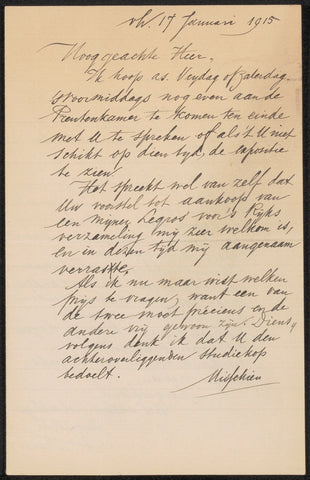 vh. 17 Januari 1915
Hooggeachte Heer,
Ik hoop as. Vrydag of Zaterdag
voormiddags nog even aan de
Prentenkamer te komen ten einde
met U te spreken of als 't U niet
schikt op dien tyd, de expositie
te zien.
Het spreekt wel van zelf dat
Uw voorstel tot aankoop van
een myner Legros voor 's Ryks
verzameling my zeer welkom is,
en in dezen tyd my aangenaam
verraste.
Als ik nu maar wist welken
prys te vragen, want een van
de twee moet precieus en de
andere vry gewoon zyn. Diens-
volgens denk ik dat U den
achteroverliggenden studiekop
bedoelt.
Misschien